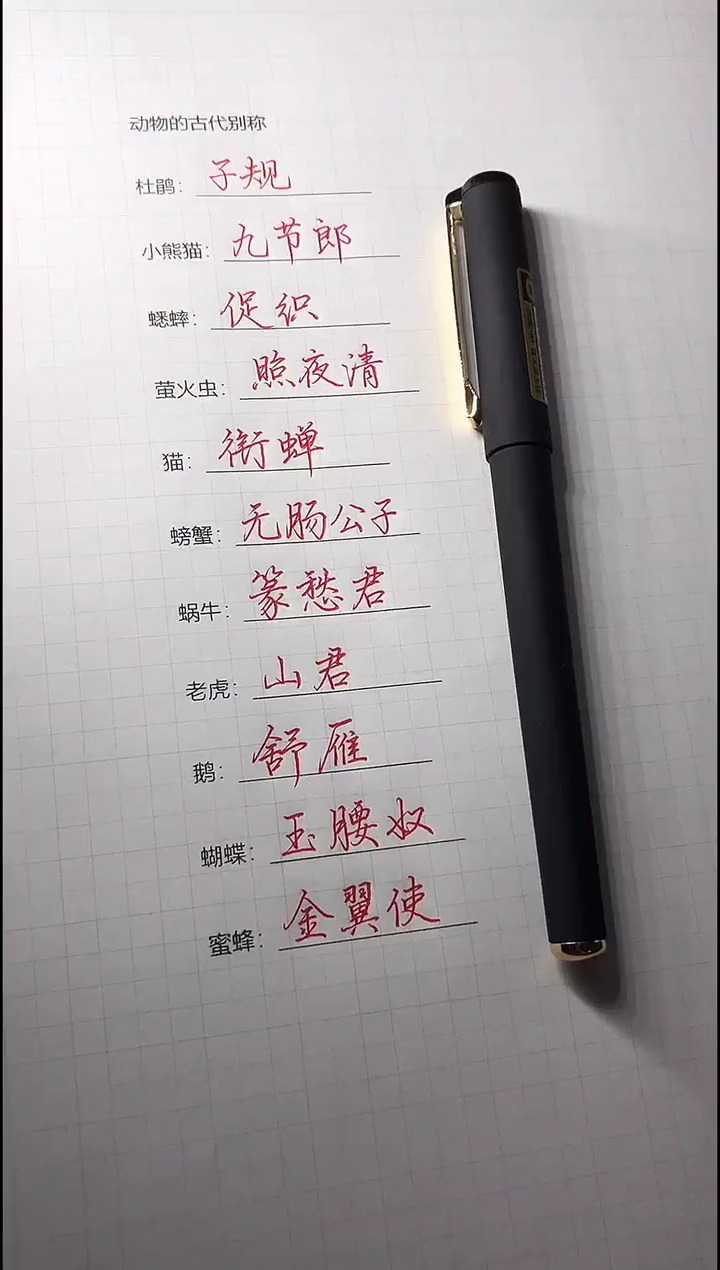 动物的古代别称
杜鹃：子规
小熊猫：九节郎
蟋蟀：促织
萤火虫：照夜清
猫：衔蝉
螃蟹：无肠公子
蜗牛：篆愁君
老虎：山君
鹅：舒雁
蝴蝶：玉腰奴
蜜蜂：金翼使